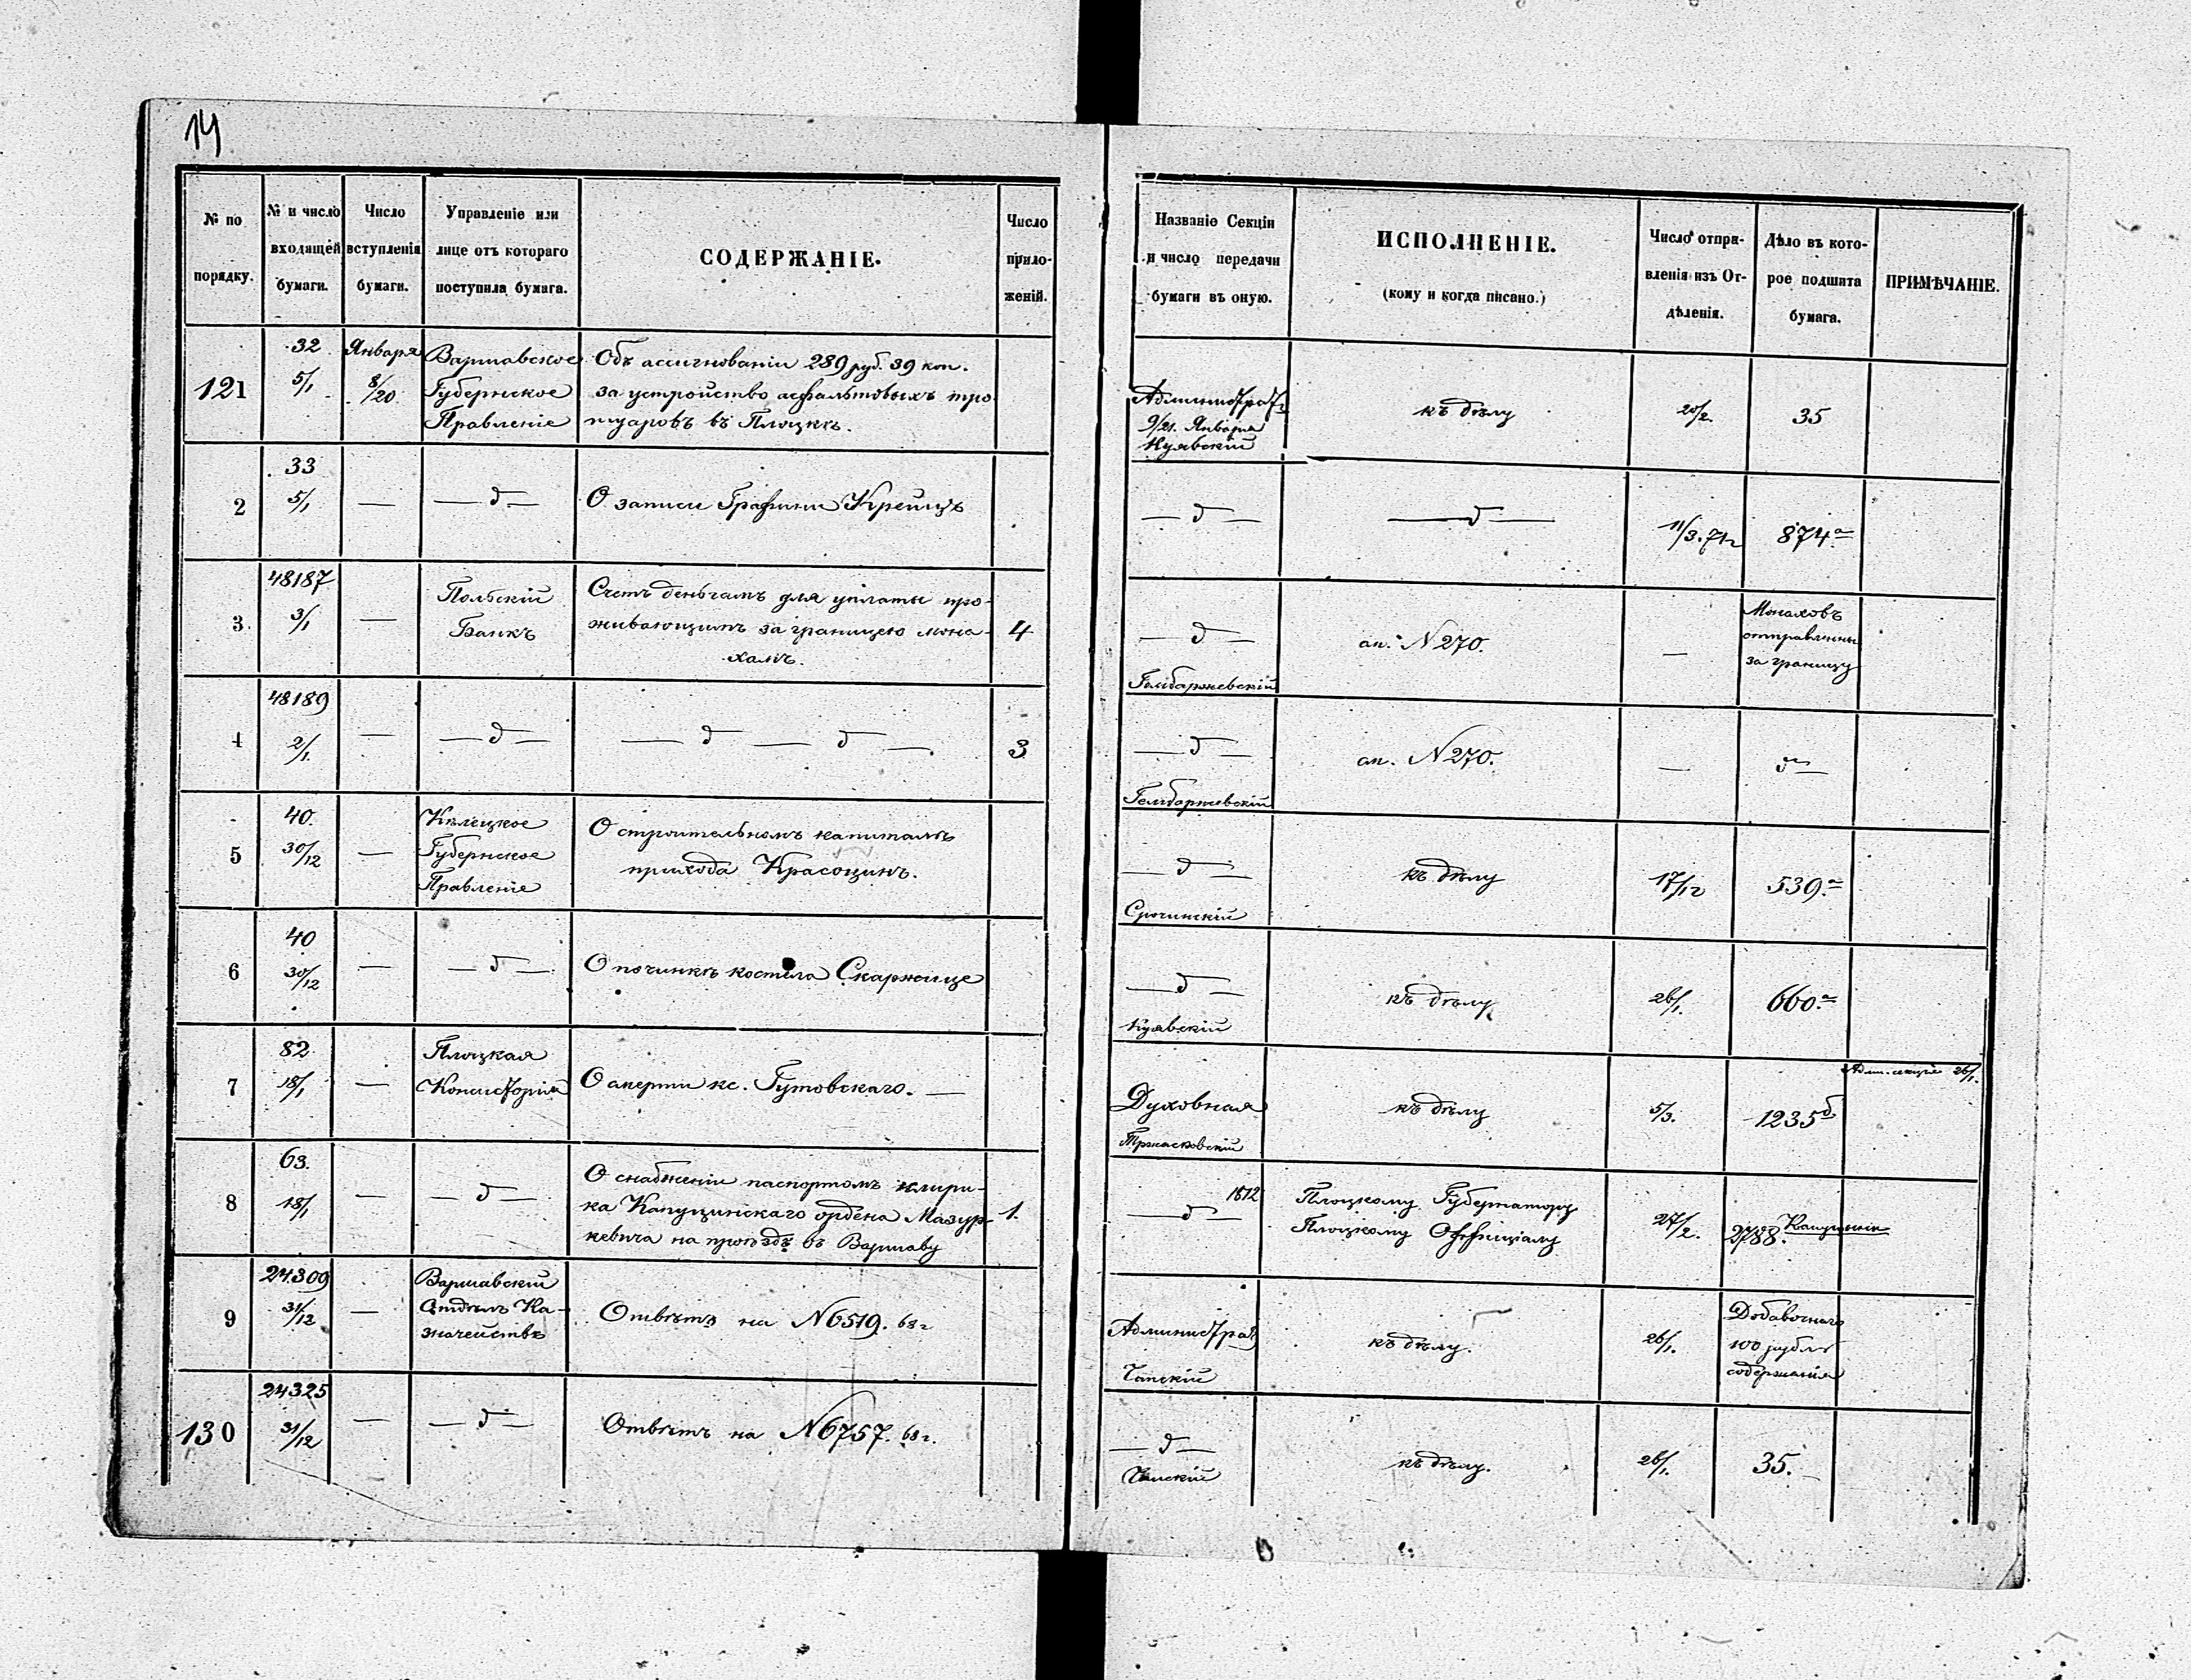 14
№ по порядку.
№ и число входящей бумаги.
Число вступленія бумаги.
Управленіе или лице отъ котораго поступила бумага.
СОДЕРЖАНІЕ.
Число приложеній.
Названіе Секціи и число передачи бумаги въ оную.
ИСПОЛНЕНІЕ.
(кому и когда писано.)
Число отправленія изъ Отдѣленія.
Дѣло въ которое подшита бумага.
ПРИМѢЧАНІЕ.
121
32
5/1
Января
8/20
Варшавское
Губернское
Правленіе
Объ ассигнованіи 289 руб. 39 коп.
за устройство асфальтовыхъ тро
туаровъ въ Плоцкѣ.
Администрат.
9/21. Января
Куявскій
къ дѣлу
20/2.
35
2
33
5/1
—
— д —
О записи Графини Крейцъ
— д —
— д —
11/3. 71 г
874 а
3.
48187
3/1
—
Польскій
Банкъ
Счетъ деньгамъ для уплаты про-
живающимъ за границею мона-
хамъ.
4
— д —
ап. N 270.
—
Монаховъ
отправленны
за границу
4
48189
2/1.
—
— д —
— д — д —.
3
— д —
ап. N 270.
—
д —
5
40.
30/12
—
Кѣлецкое
Губернское
Правленіе
О строительномъ капиталѣ
прихода Красоцинъ.
— д —
Срочинскій
къ дѣлу
17/12
539. а
6
40
30/12
—
— д —
О починкѣ костела Скаржице
— д —
Куявскій
къ дѣлу
26/1.
660. а
7
82
18/1
—
Плоцкая
Консисторія
О смерти кс. Гутовскаго. —
Духовная
къ дѣлу
5/3.
1235 б
Адм. секціи 26/1.
8
63.
18/1
—
— д —
О снабженіи паспортомъ клири-
ка Капуцинскаго ордена Мазур-
кевича на проѣздъ въ Варшаву
1.
— д —
1812
Плоцкому Губернатору
Плоцкому Оффиціалу
27/2.
2788.
9
24309
31/12
—
Варшавскій
Отдѣлъ Ка-
значейства
Отвѣтъ на N 6519. 68 г
Администрат
Чапскій
къ дѣлу.
26/1.
Добавочнаго
100 рубл
содержанія
130
24325
31/12
—
— д —
Отвѣтъ на N 6757. 68 г.
— д —
къ дѣлу.
26/1.
35. —